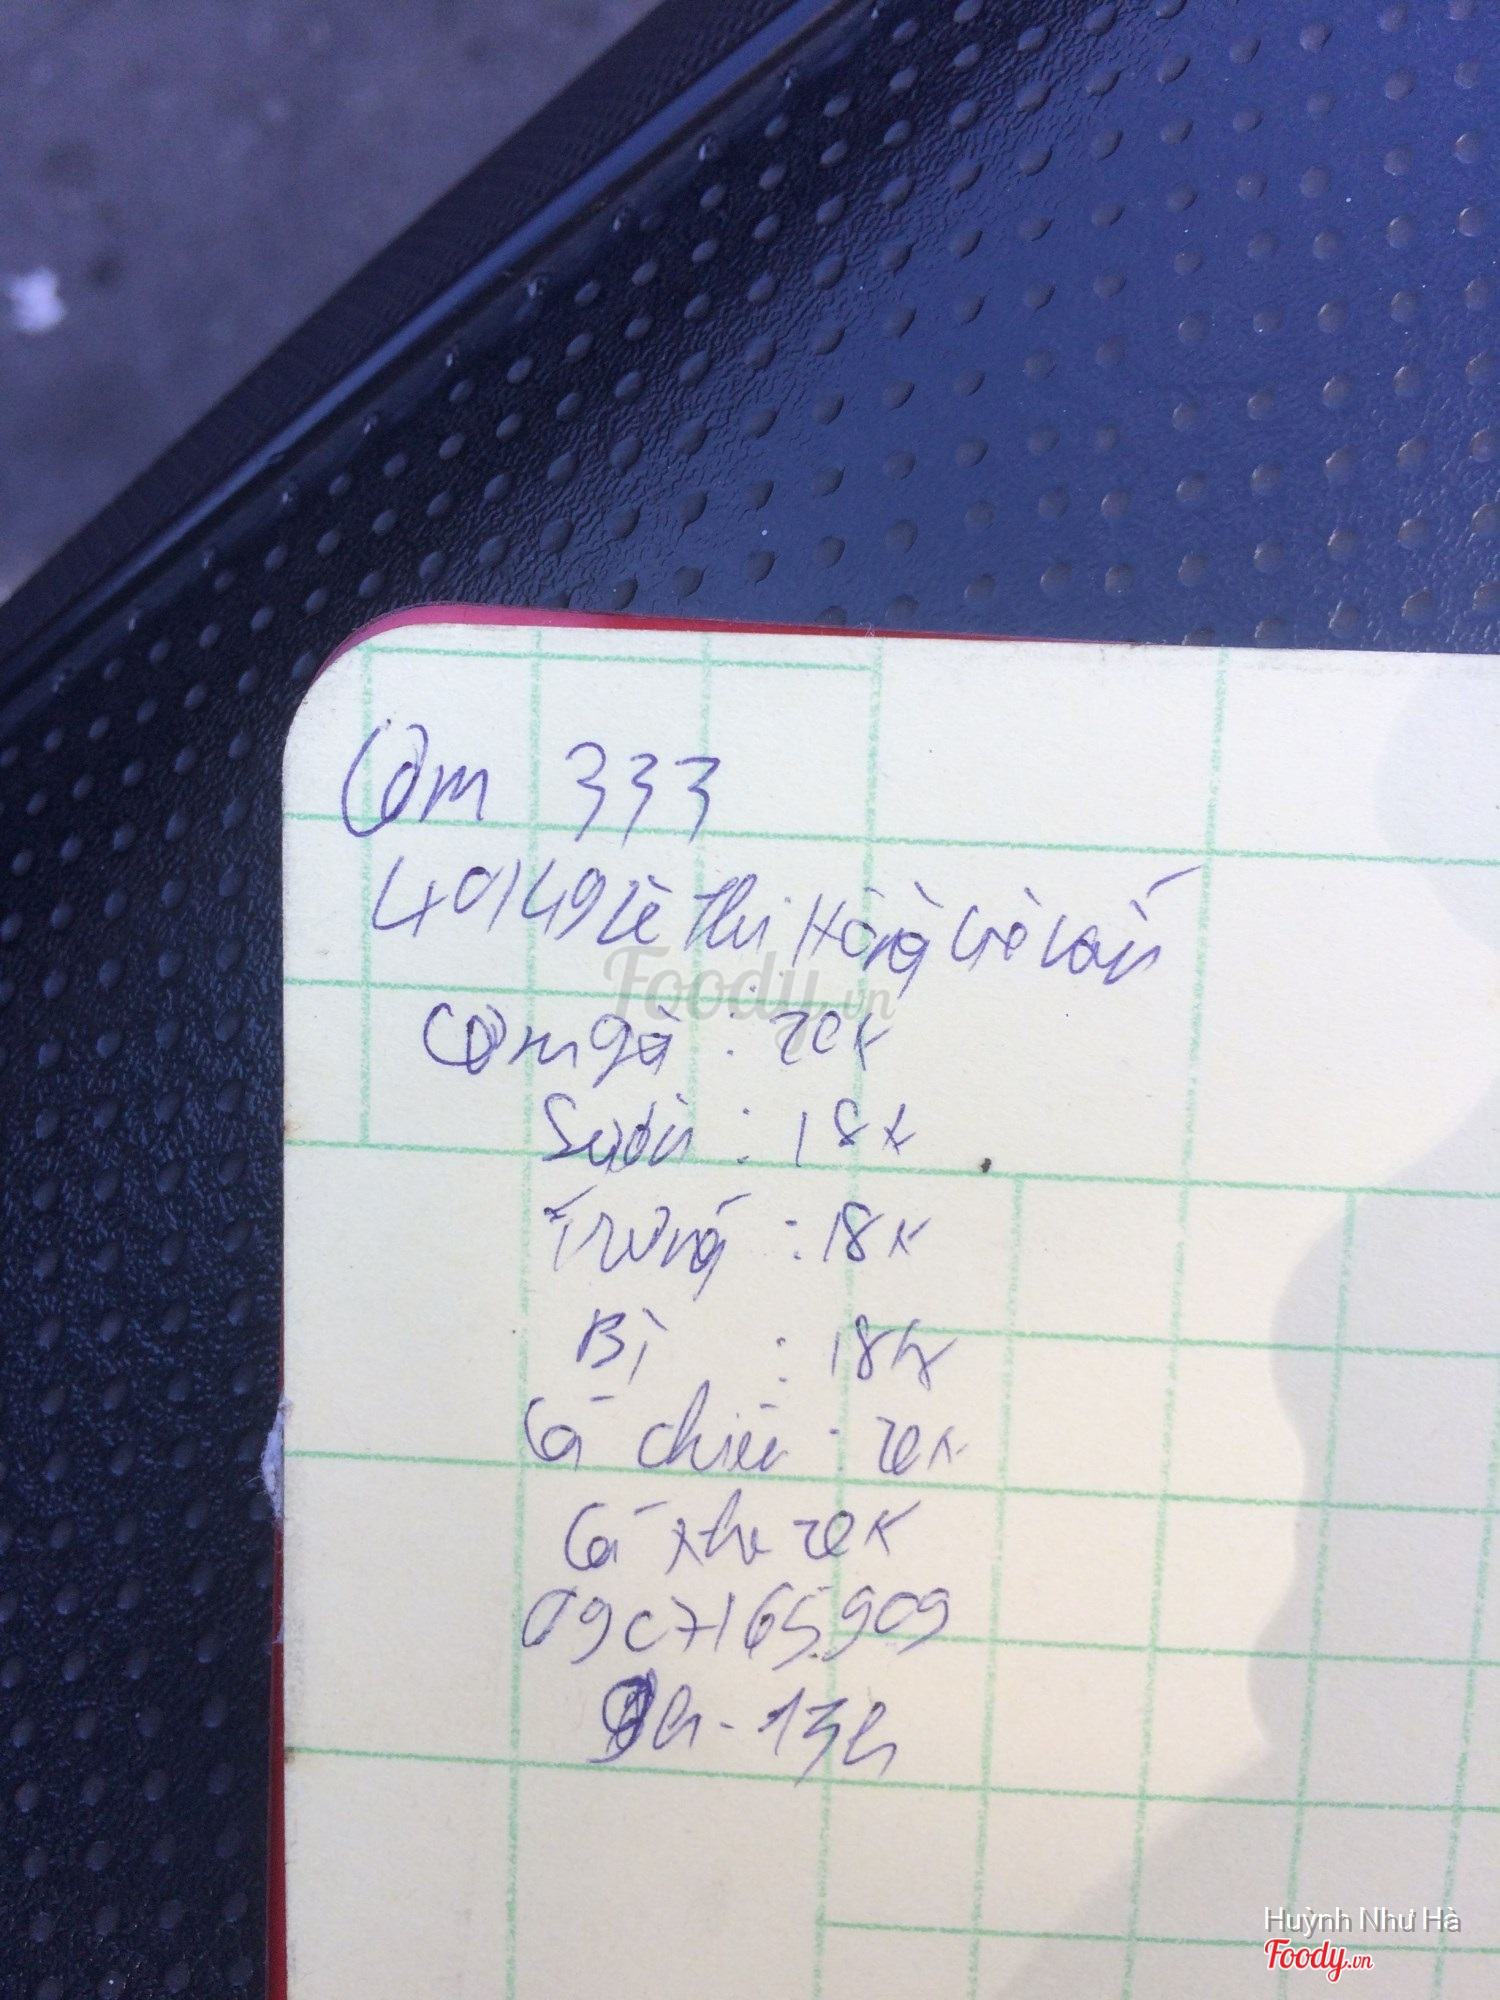 Cơm 333
40/49 Lê Thị Hồng Gò Vấp
Cơm gà : 20k
Sườn : 18k
Trứng : 18k
Bì : 18k
Cá chiên : 20k
Cá thu 20k
0907165.909
9h - 13h
Foody.vn
Huỳnh Như Hà
Foody.vn